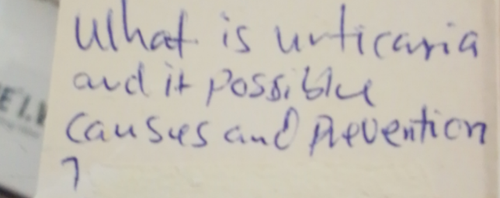 What is urticaria
and it possible
causes and prevention
?